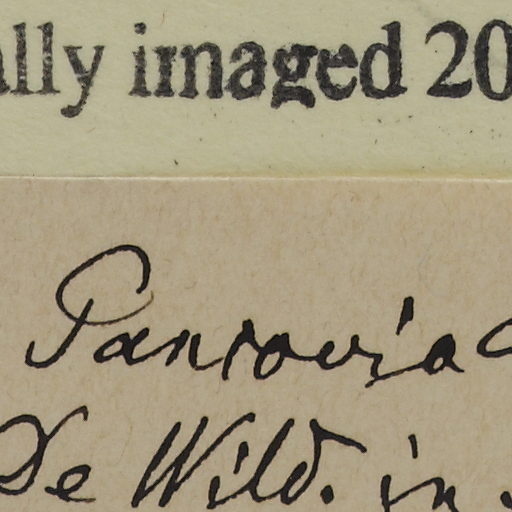 ally imaged 20
Pancovia
De Wild. in